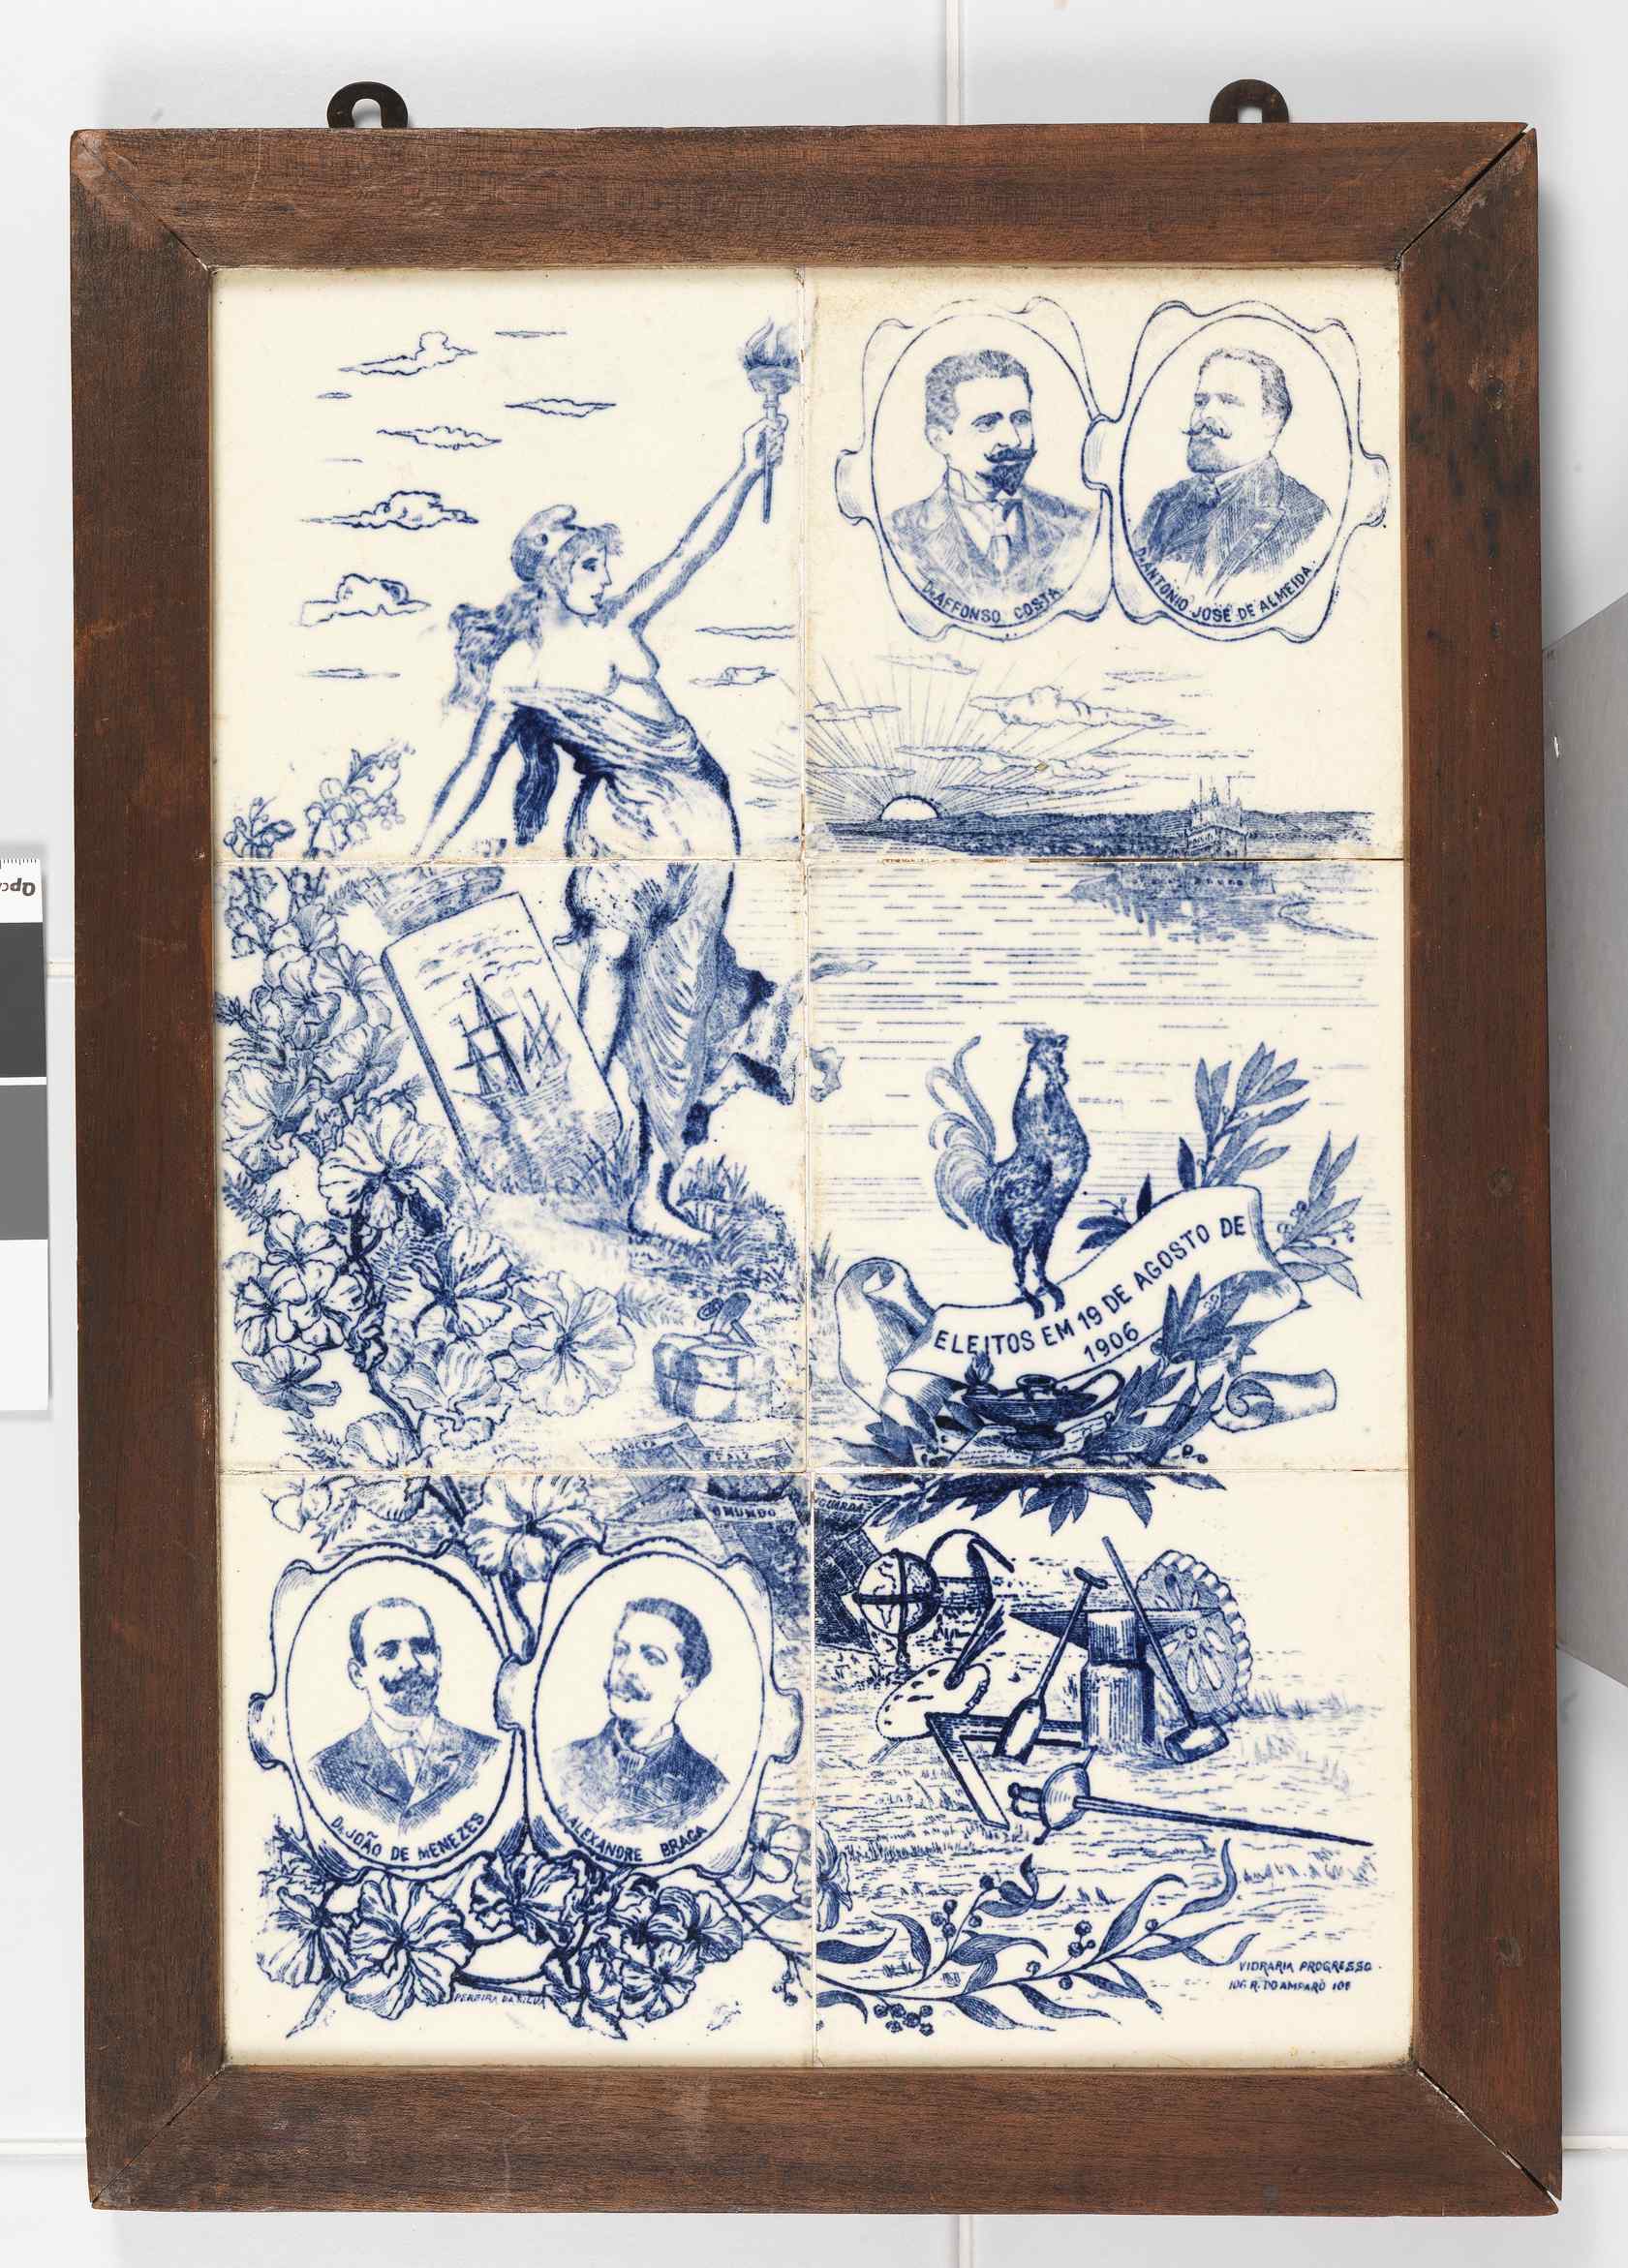 Dr. AFFONSO COSTA
Dr. ANTONIO JOSÉ DE ALMEIDA.
ELEITOS EM 19 DE AGOSTO DE
1906
A LUCTA
O MUNDO
NGUARDA
Dr. JOÃO DE MENEZES
Dr. ALEXANDRE BRAGA
PEREIRA DA SILVA
VIDRARIA PROGRESSO.
106 R. DO AMPARO 108